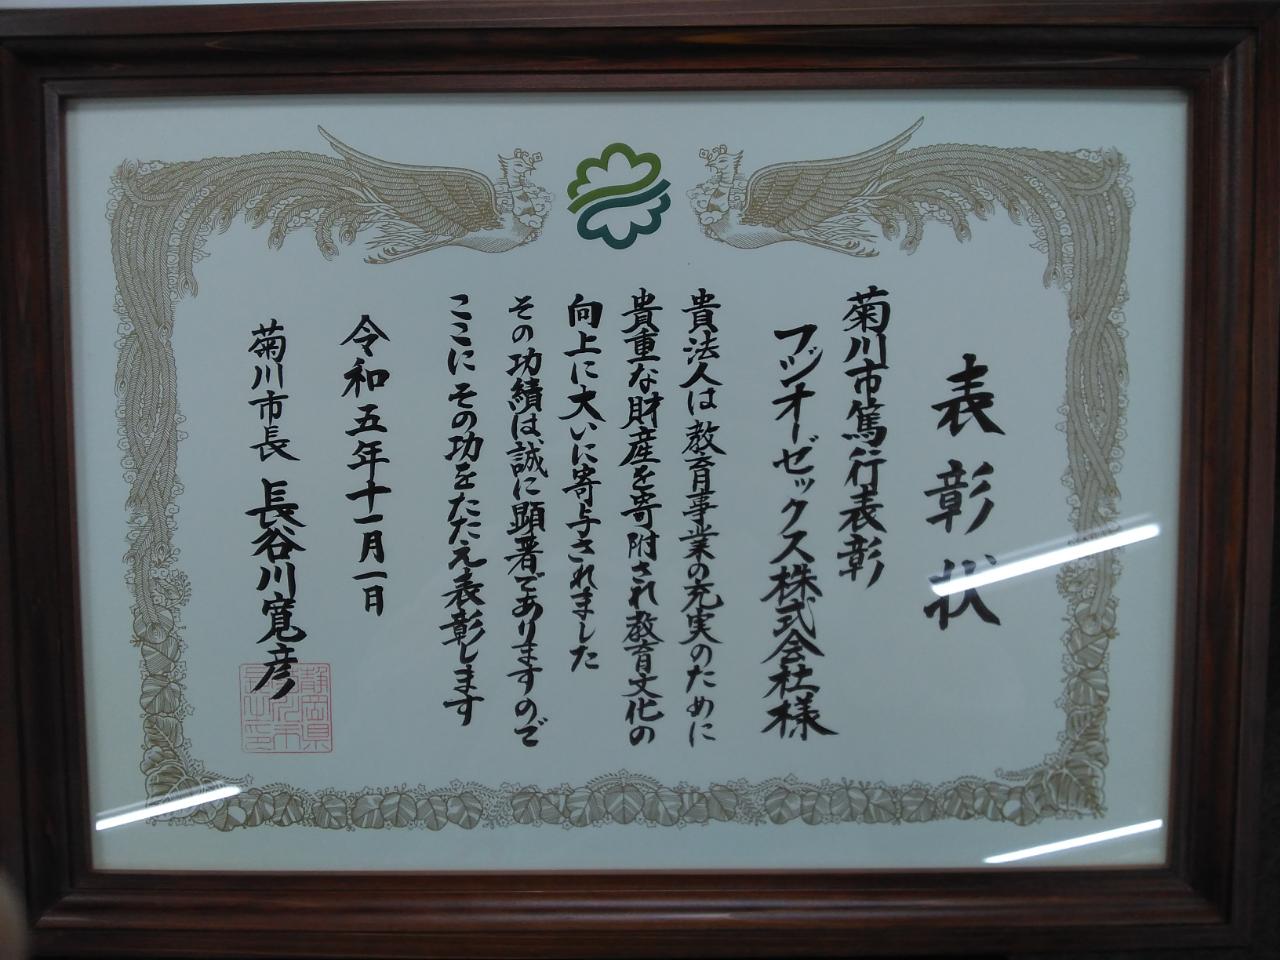 表彰状
菊川市篤行表彰
フジオーゼックス株式会社様
貴法人は教育事業の充実のために
貴重な財産を寄附され教育文化の
向上に大いに寄与されました
その功績は誠に顕著でありますので
ここにその功をたたえ表彰します
令和五年十一月一日
菊川市長 長谷川寛彦
静岡県
菊川市
長之印